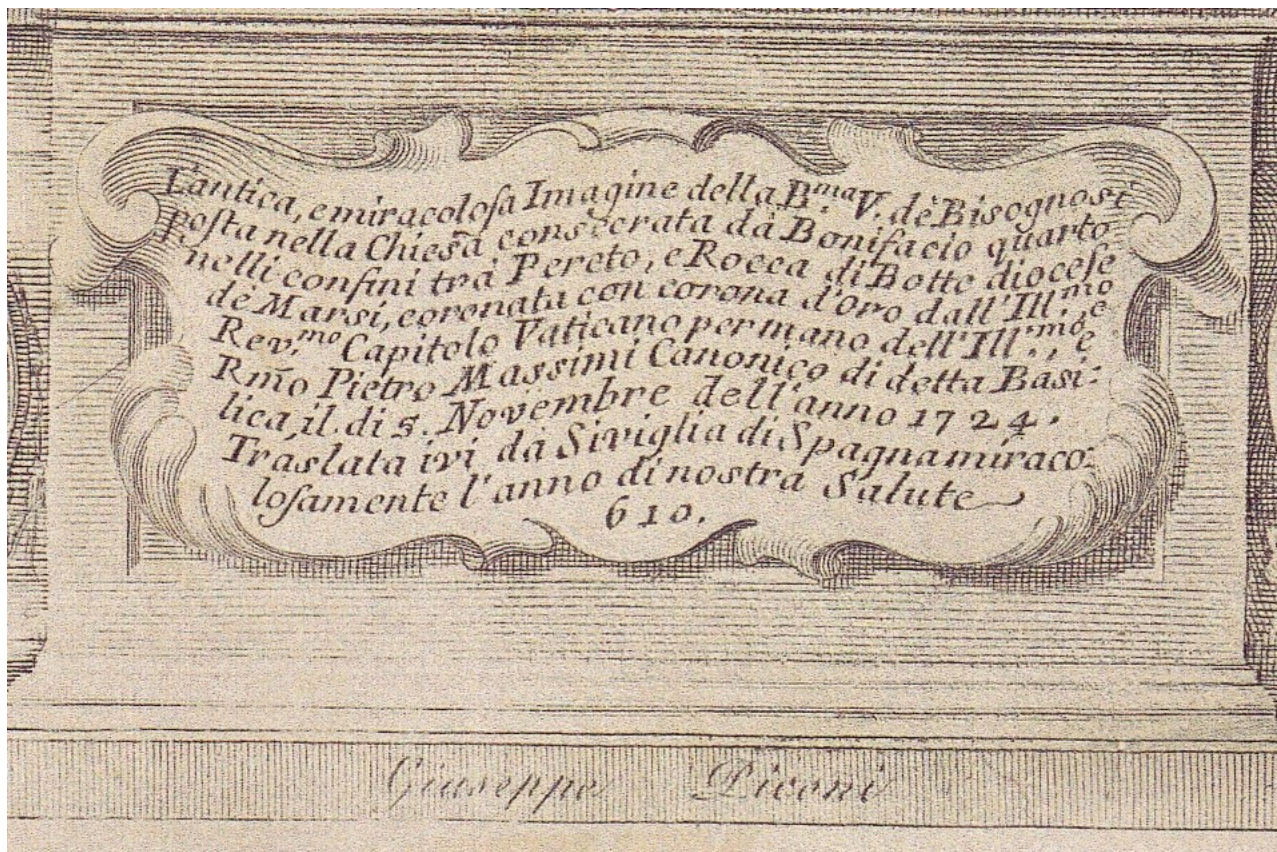 L'antica, e miracolosa Imagine della B.ma V. dè Bisognosi
posta nella Chiesa consecrata da Bonifacio quarto
nelli confini trà Pereto, e Rocca di Botte diocese
dè Marsi, coronata con corona d'oro dall'Ill.mo e
Rev.mo Capitolo Vaticano per mano dell'Ill.mo, e
Rm̃o Pietro Massimi Canonico di detta Basi:
lica, il di 5. Novembre dell'anno 1724.
Traslata ivi dà Siviglia di Spagna miraco:
losamente l'anno di nostra Salute
610.
Giuseppe